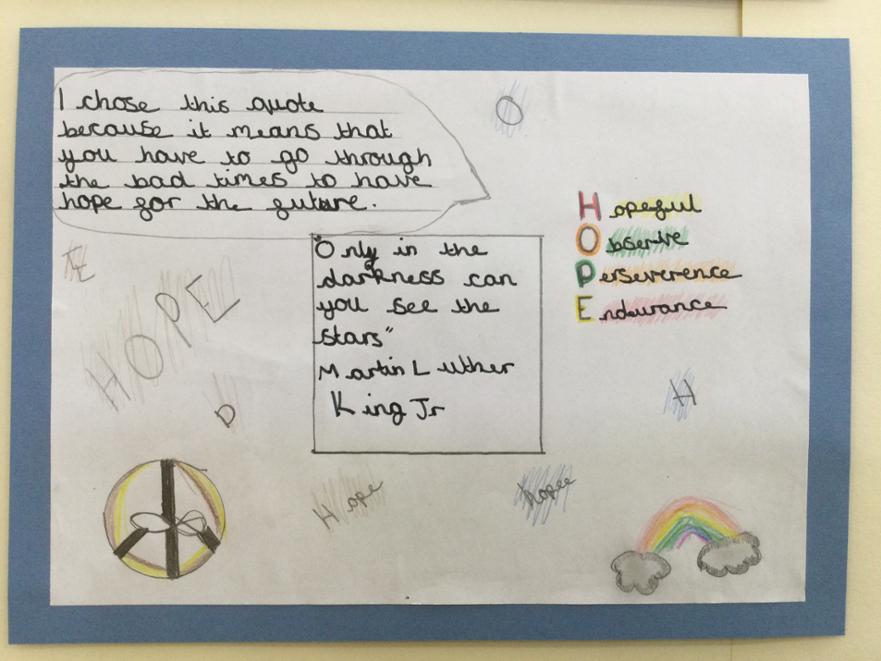 I chose this quote
because it means that
you have to go through
the bad times to have
hope for the future.
O
Hopeful
Observe
Perseverence
Endurance
"Only in the
darkness can
you see the
stars"
Martin Luther
King Jr
E
HOPE
P
H
Hope
hope